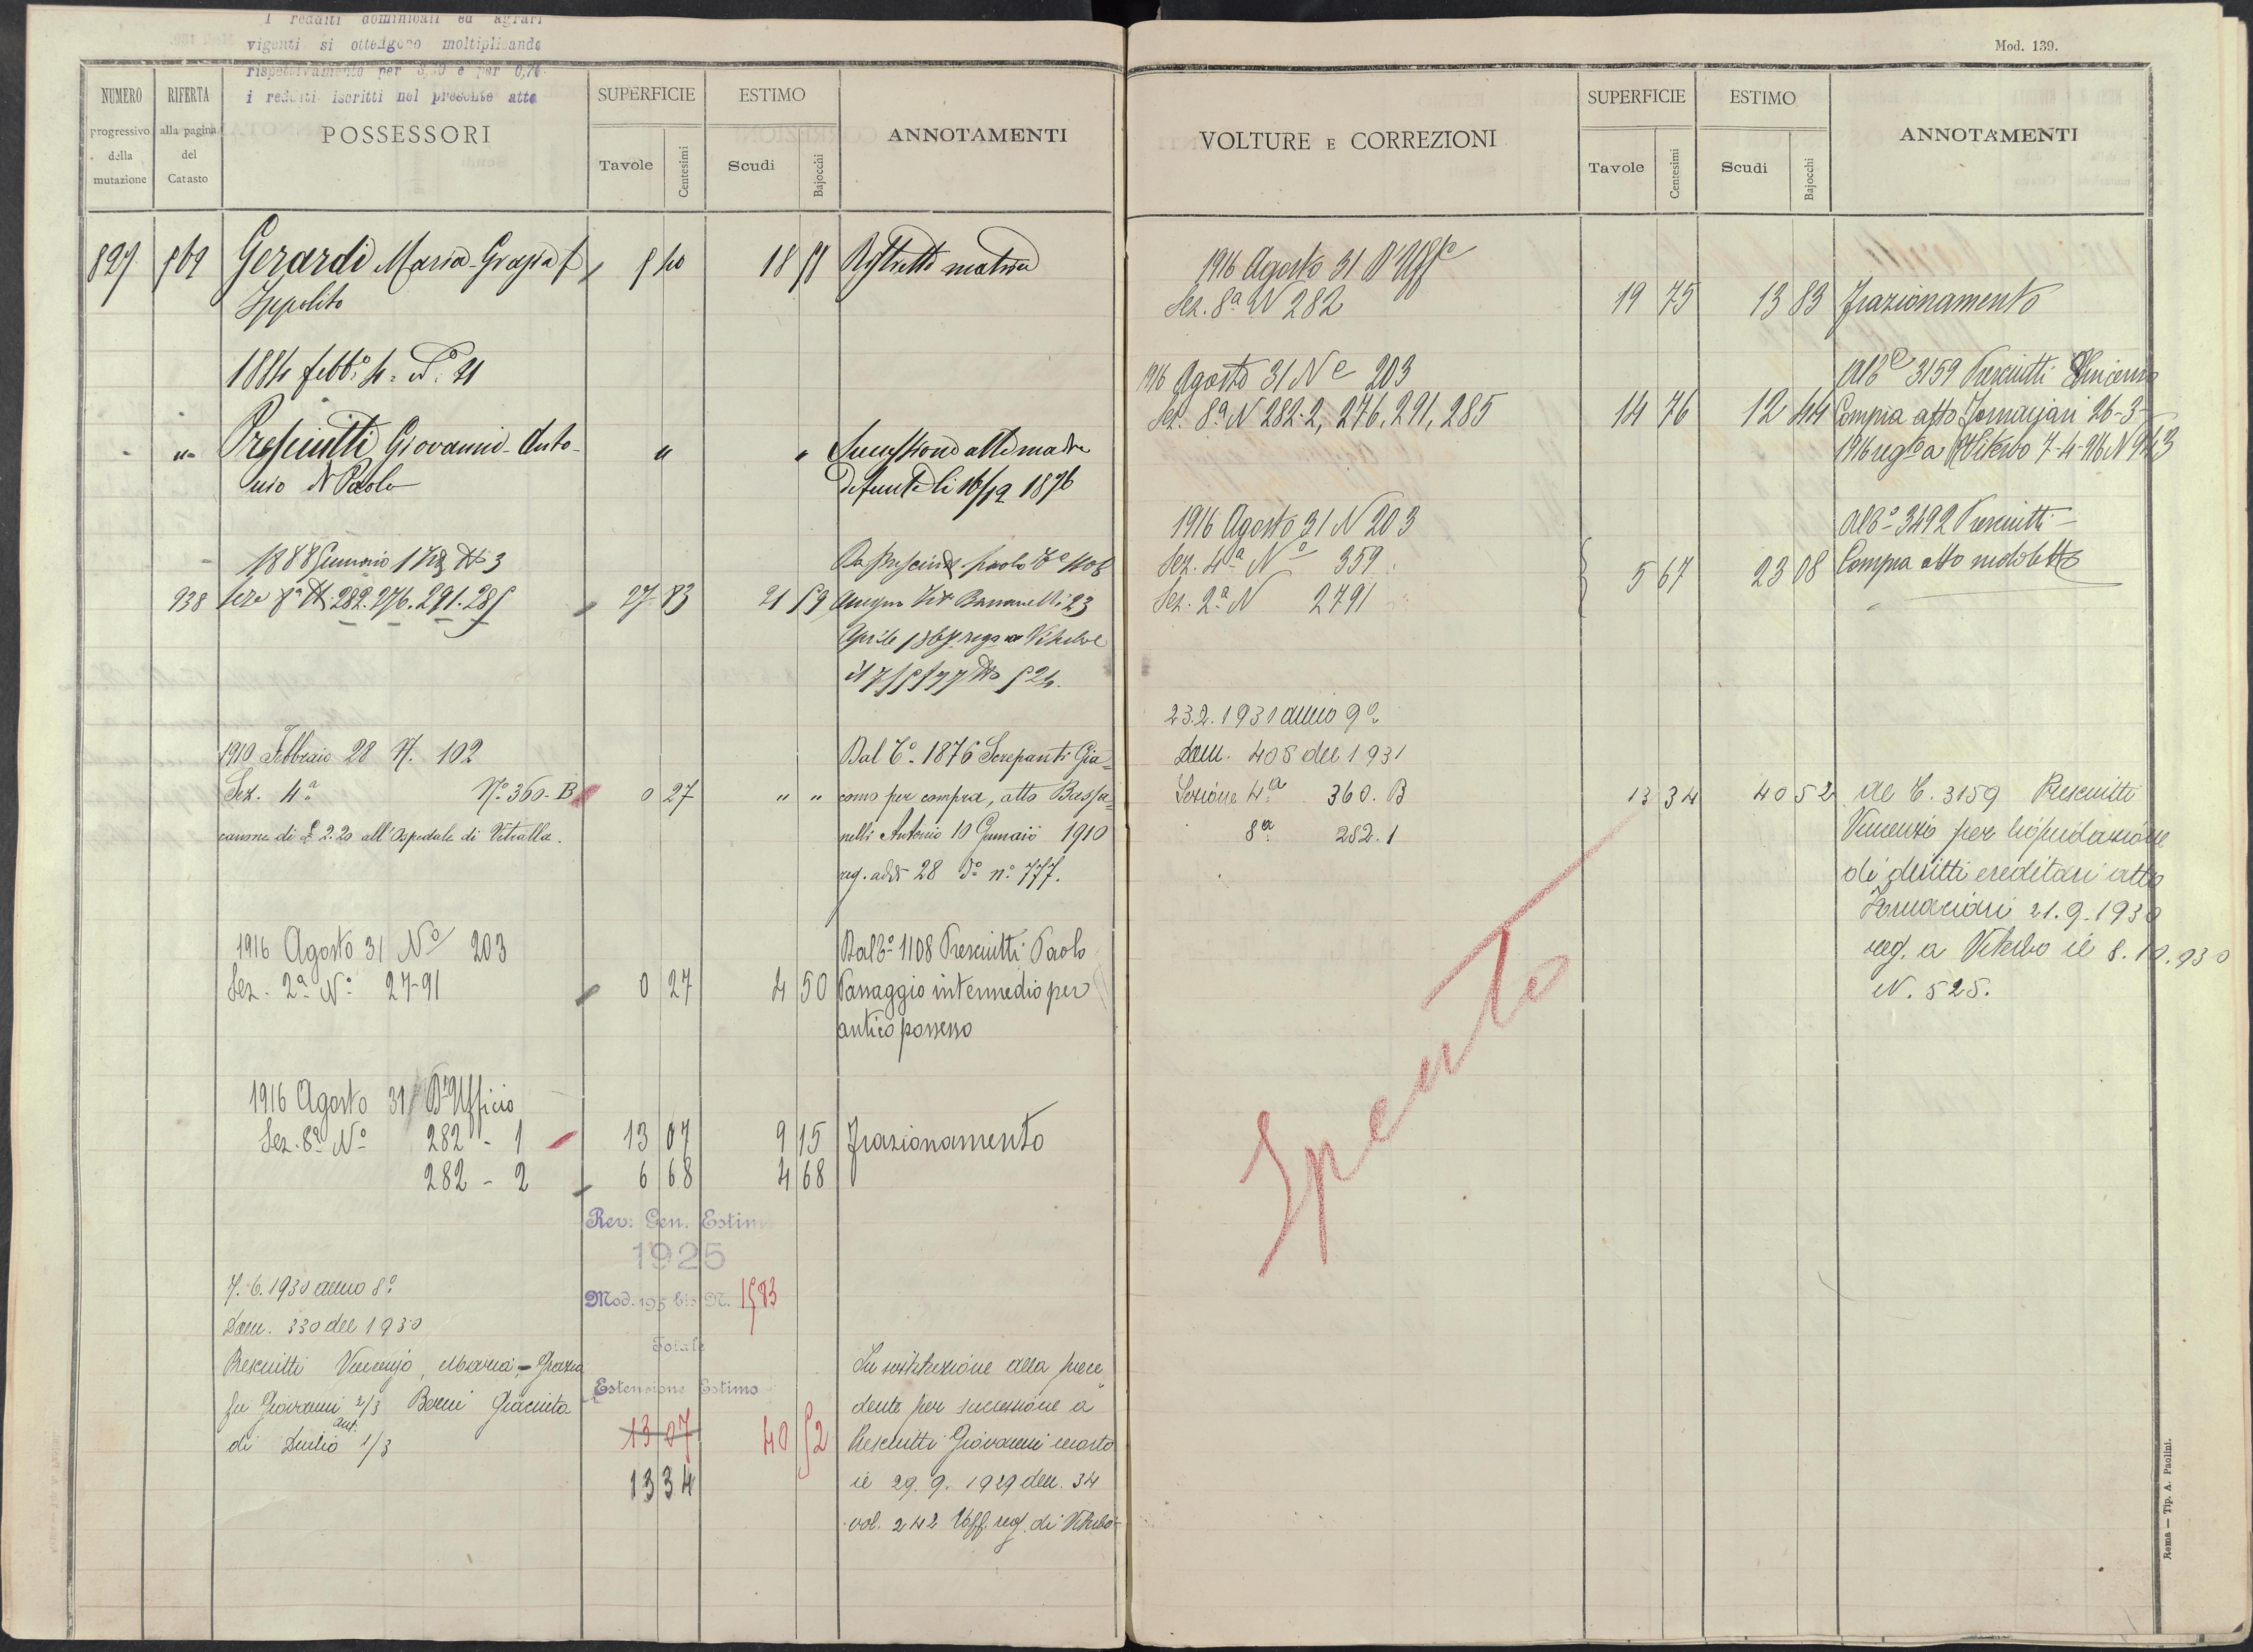 I redditi dominicali ed agrari
vigenti si ottengono moltiplicando
rispettivamente per 3,30 e per 0,70
i redditi iscritti nel presente atto
NUMERO
progressivo
della
mutazione
RIFERTA
alla pagina
del
Catasto
POSSESSORI
SUPERFICIE
Tavole
Centesimi
ESTIMO
Scudi
Bajocchi
ANNOTAMENTI
827 569 Gerardi Maria Grazia f 5 40 18 51 Ristretto matrice
Ippolito
1884 febb.o 4. N.o 21
" Presciutti Giovanni Anto- " " Successione alla madre
nio di Paolo defunta li 16/12 1876
1888 Gennaio 17 N 3 Da Presciutti paolo
938 Sez 8a N. 282. 276. 291. 285 27 83 21 59 Bassanelli 23
Aprile rega a Viterbo
il N 524.
1910 Febbraio 28 N. 102 Dal C.o 1876 Screpanti Gia=
Sez. 4a N.o 360-B 0 27 " " como per compra, atto Bassa=
canone di £ 2.20 all'Ospedale di Vetralla. nelli Antonio 10 Gennaio 1910
reg. addì 28 d.o n.o 777.
1916 Agosto 31 No 203 Dal C.o 1108 Presciutti Paolo
Sez. 2a No 27-91 0 27 4 50 Passaggio intermedio per
antico possesso
1916 Agosto 31 D'Ufficio
Sez. 8a No 282 - 1 13 07 9 15 frazionamento
282 - 2 6 68 4 68
Rev: Gen. Estimi
1925
Mod. 195 bis N. 1583
Totale
Estensione Estimo
13 07 40 52
13 34
7.6.1930 anno 8o
Dom. 330 del 1930
Presciutti Vincenzo, Maria-Grazia
fu Giovanni 2/3 Borni Giacinta
ant.
di Duilio 1/3
In sostituzione alla prece
dente per successione a
Presciutti Giovanni morto
il 29.9.1929 den. 34
vol. 242 Uff. reg. di Viterbo
Mod. 139.
VOLTURE E CORREZIONI
SUPERFICIE
Tavole
Centesimi
ESTIMO
Scudi
Bajocchi
ANNOTAMENTI
1916 Agosto 31 D'Uff.o
Sez. 8a N 282 19 75 13 83 frazionamento
1916 Agosto 31 N.o 203 Al C.o 3159 Presciutti Vincenzo
Sez. 8a N 282-2, 276, 291, 285 14 76 12 44 Compra atto Fornaciari 26-3-
1916 reg.to a Viterbo 7-4-916 N 943
1916 Agosto 31 N 203 Al C.o 3492 Presciutti
Sez. 4a No 359 5 67 23 08 Compra atto sudetto
Sez. 2a N 2791
23.2.1931 anno 9o
Dom. 408 del 1931
Sezione 4a 360. B 13 34 40 52 al C. 3159 Presciutti
8a 282.1 Vincenzo per liquidazione
di diritti ereditari atto
Fornaciari 21.9.1930
reg. a Viterbo il 8.10.930
N. 525.
Spento
Roma — Tip. A. Paolini.